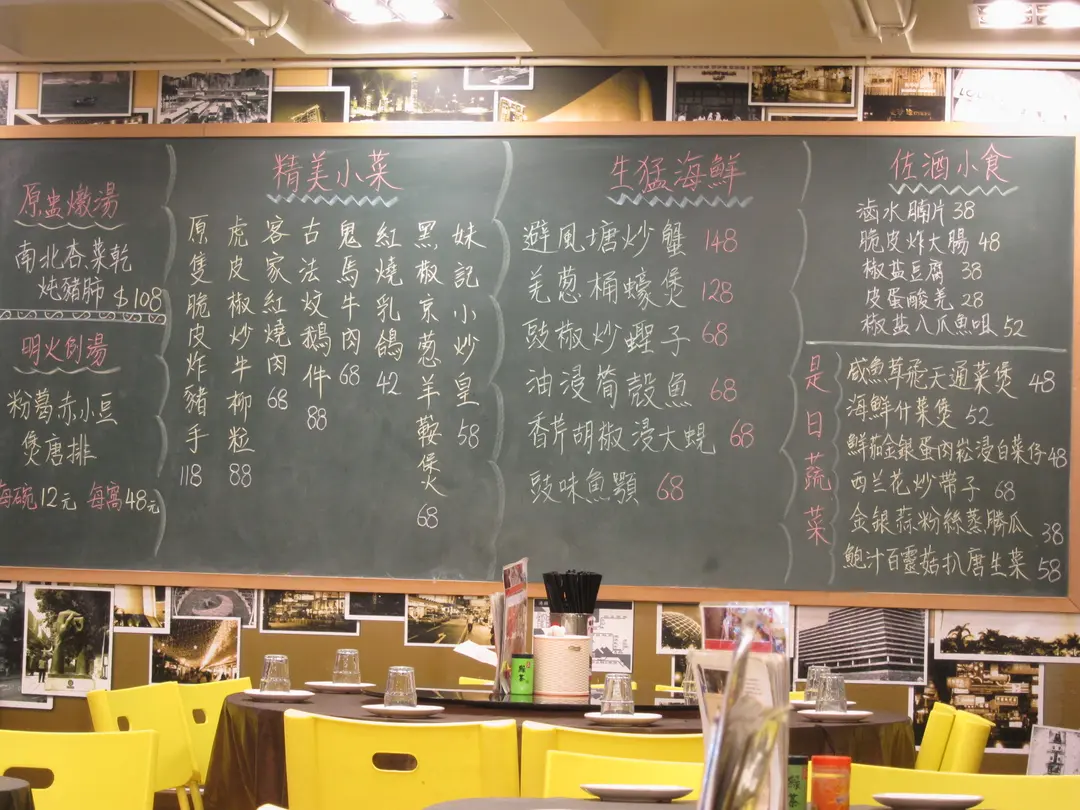 原盅燉湯
南北杏菜乾
炖豬肺 $108
明火例湯
粉葛赤小豆
煲唐排
每碗12元 每窩48元
精美小菜
妹記小炒皇 58
黑椒京葱羊鞍煲 68
紅燒乳鴿 42
鬼馬牛肉 68
古法炆鵝件 88
客家紅燒肉 68
虎皮椒炒牛柳粒 88
原隻脆皮炸豬手 118
生猛海鮮
避風塘炒蟹 148
羌葱桶蠔煲 128
豉椒炒蟶子 68
油浸筍殼魚 68
香芹胡椒浸大蜆 68
豉味魚顎 68
佐酒小食
滷水腩片 38
脆皮炸大腸 48
椒盐豆腐 38
皮蛋酸羌 28
椒盐八爪魚咀 52
是日蔬菜
咸魚茸飛天通菜煲 48
海鮮什菜煲 52
鮮茄金銀蛋肉崧浸白菜仔 48
西兰花炒帶子 68
金銀蒜粉絲蒸勝瓜 38
鮑汁百靈菇扒唐生菜 58